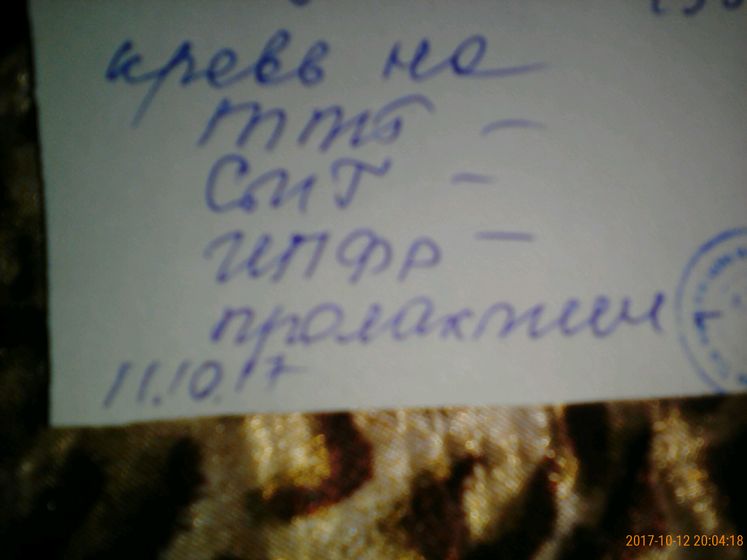 кровь на
ТТГ -
СТГ -
ИПФР -
пролактин
11.10.17
2017-10-12 20:04:18